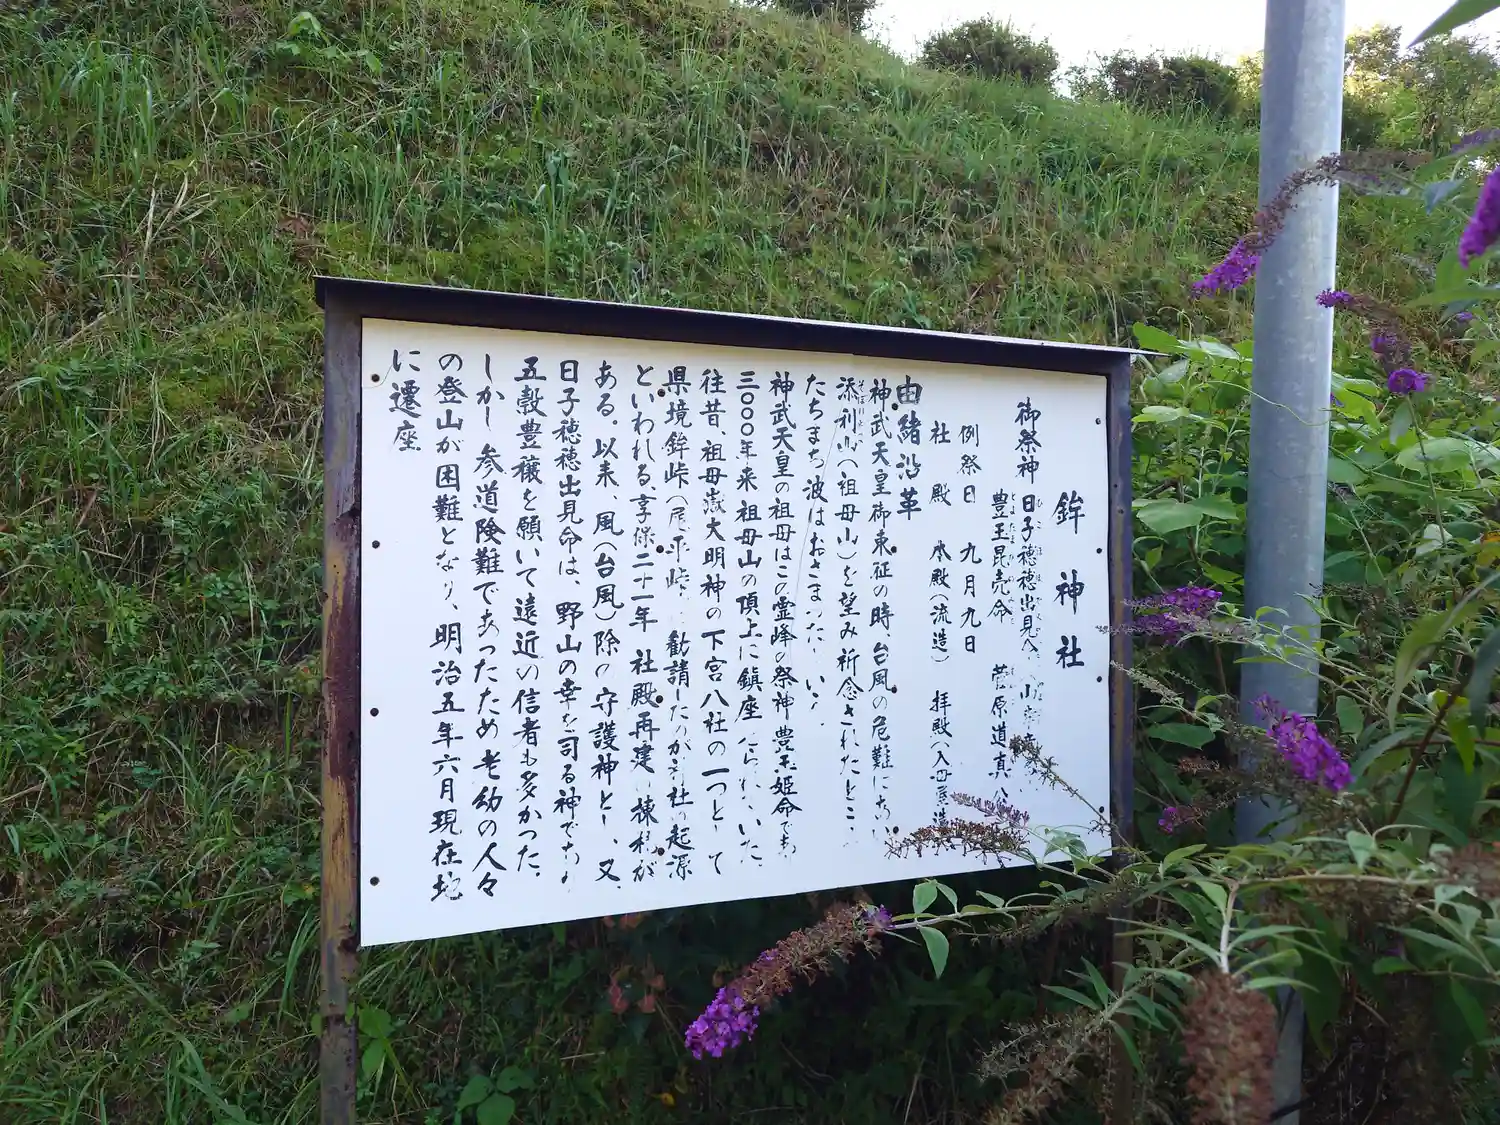 鉾神社
御祭神 日子穂穂出見
豊玉昆売命 菅原道真
例祭日 九月九日
社殿 本殿(流造) 拝殿(入母屋造
由緒沿革
神武天皇御東征の時、台風の危難にあい
添利山(祖母山)を望み祈念されたところ
たちまち波はおさまったという
神武天皇の祖母はこの霊峰の祭神 豊玉姫命であ
三〇〇〇年来 祖母山の頂上に鎮座 いた。
往昔、祖母嶽大明神の下宮八社の一つとして
県境鉾峠(尾平峠 勧請したのが 社の起源
といわれる。享保二十一年 社殿再建 棟札が
ある。以来、風(台風)除の守護神とし、又、
日子穂穂出見命は、野山の幸を司る神であり
五穀豊穣を願いて遠近の信者も多かった。
しかし 参道険難であったため 老幼の人々
の登山が困難となり、明治五年六月現在地
に遷座